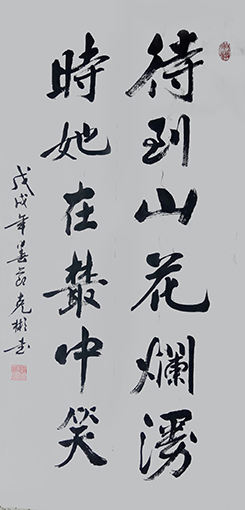 待到山花爛漫
時她在叢中笑
戊戌年春克彬書